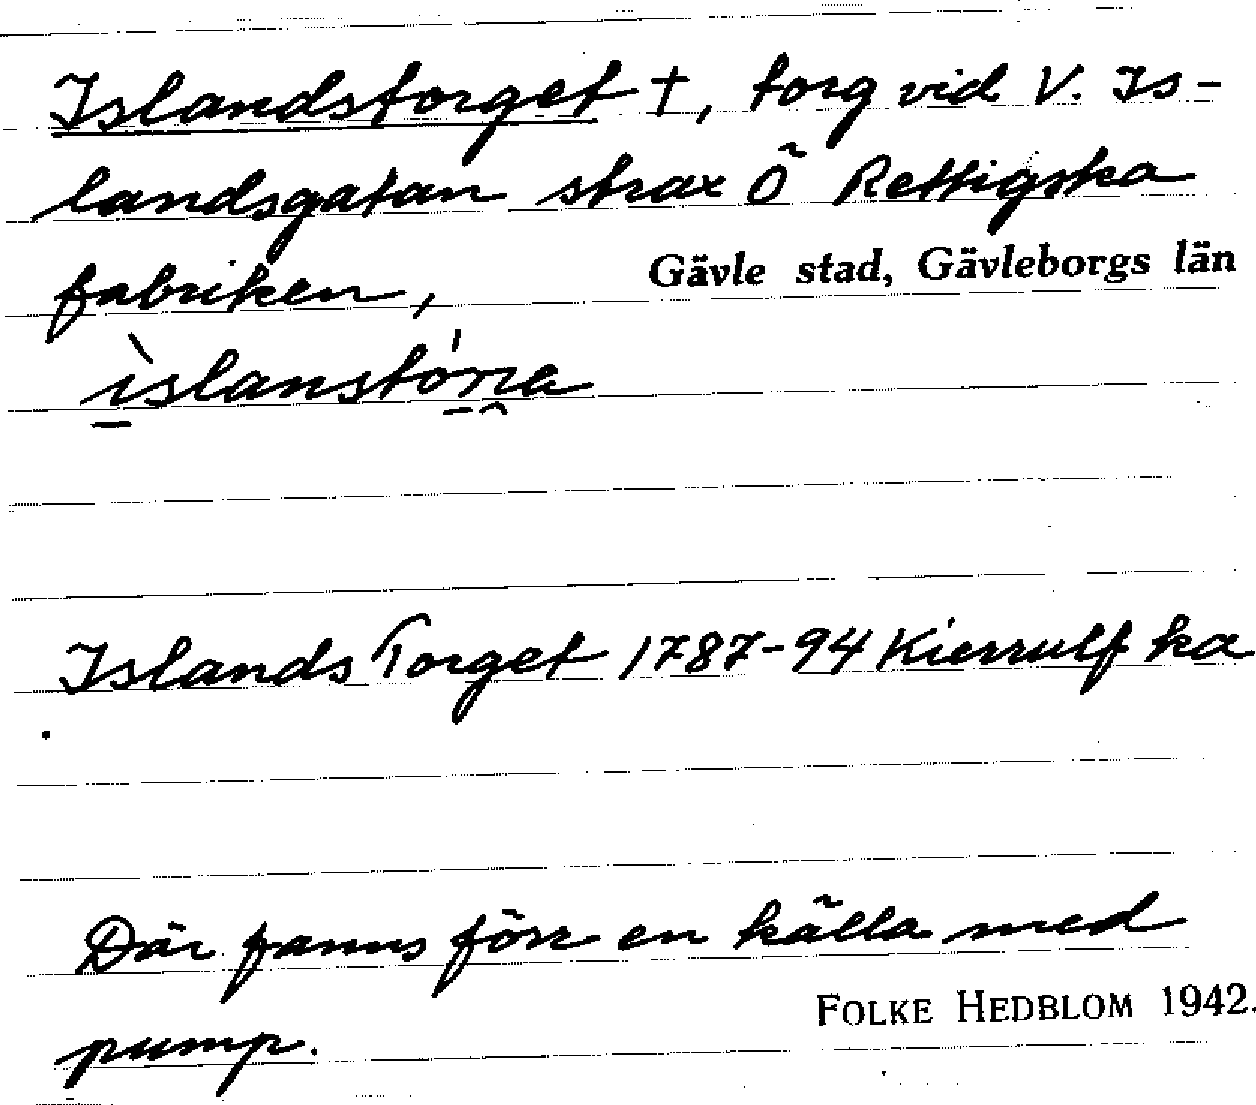 Islandstorget †, torg vid V. Is-
landsgatan strax Ö Rettigska
fabriken,
Gävle stad, Gävleborgs län
Islands Torget 1787-94 Kierrulf ka
Där fanns förr en källa med
pump.
FOLKE HEDBLOM 1942.